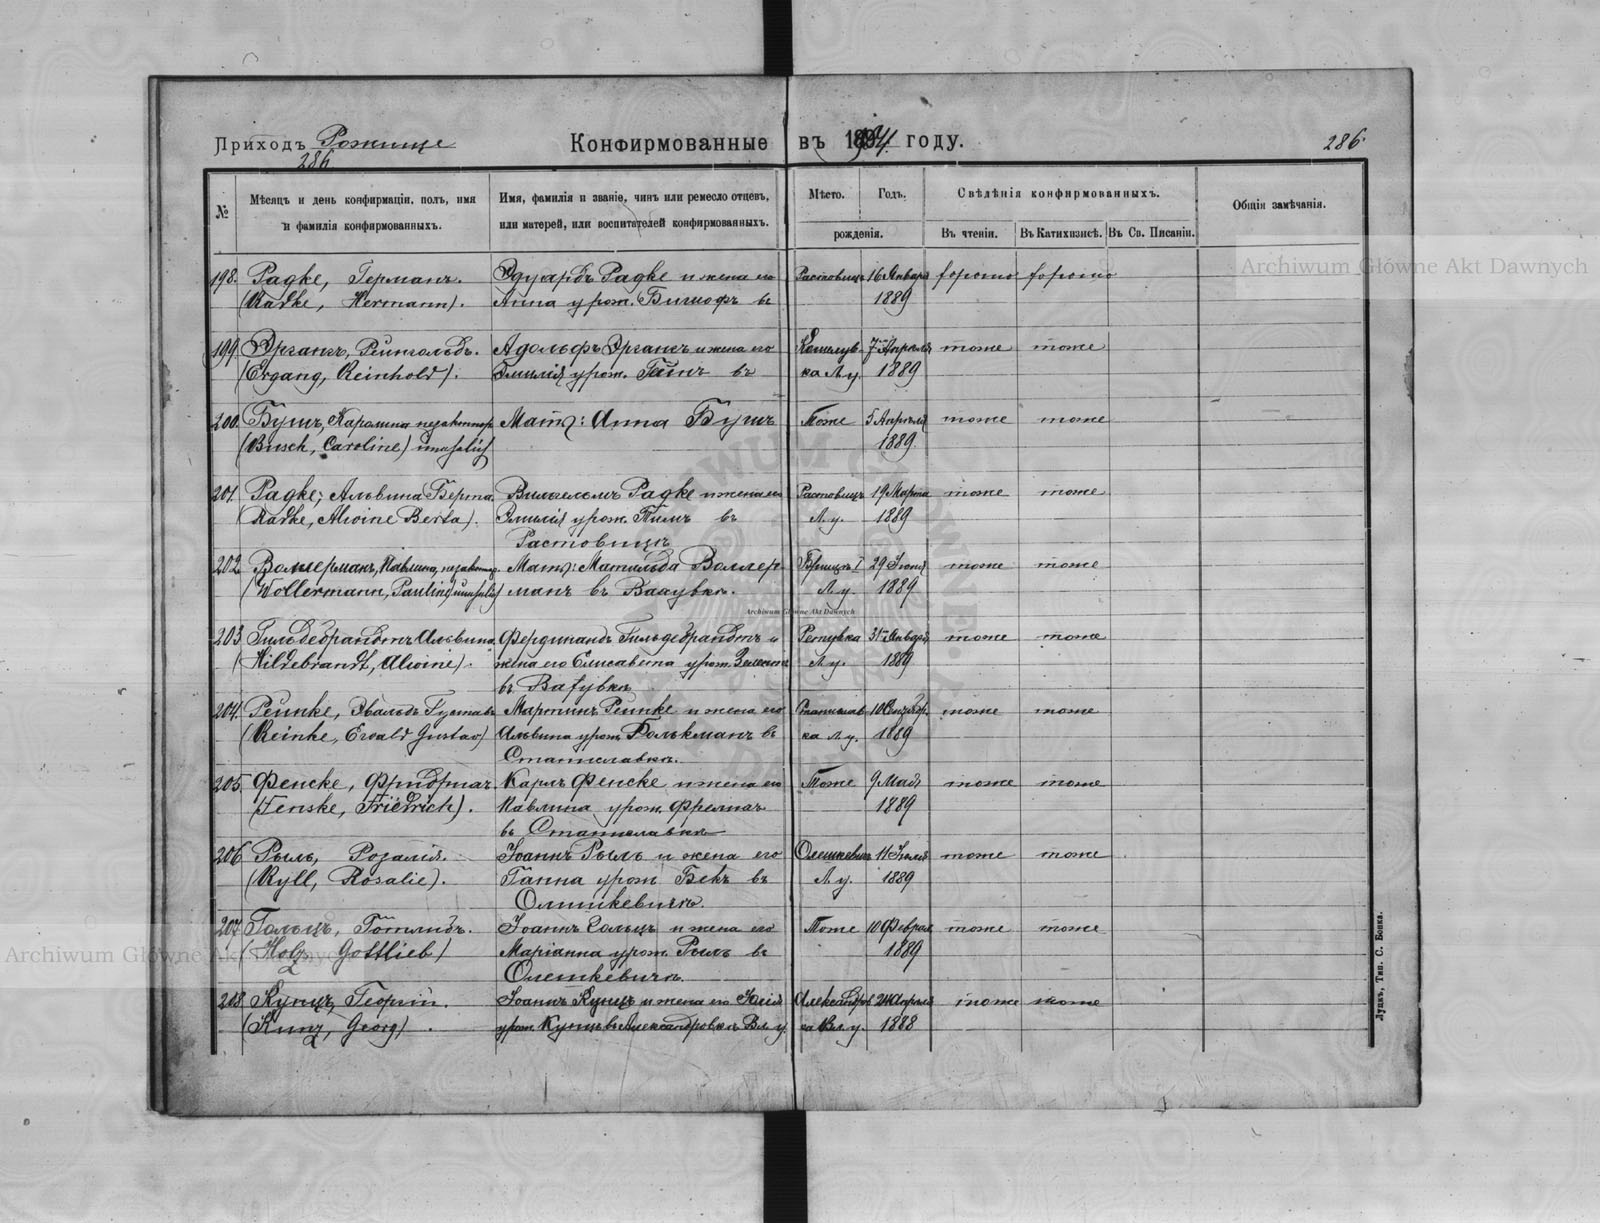 Приходъ Рожище
286
Конфирмованные въ 1904 году.
286
№
Мѣсяцъ и день конфирмаціи, полъ, имя
и фамилія конфирмованныхъ.
Имя, фамилія и званіе, чинъ или ремесло отцевъ,
или матерей, или воспитателей конфирмованныхъ.
Мѣсто.
Годъ.
рожденія.
Свѣдѣнія конфирмованныхъ.
Въ чтеніи.
Въ Катихизисѣ.
Въ Св. Писаніи.
Общія замѣчанія.
198. Радке, Германъ. Эдуардъ Радке и жена его Растовецъ 16 Января хорошо хорошо
(Radke, Hermann). Анна урож. въ 1889
199. Эргангъ, Рейнгольдъ. Адольфъ Эргангъ и жена его 7 Апреля тоже тоже
(Ergang, Reinhold). Эмилія урож. въ ка Л. у. 1889
200. Бушъ, Каролина Мать: Анна Бушъ Тоже 5 Апреля тоже тоже
(Busch, Caroline) 1889
201. Радке, Альвина Берта. Вильгельмъ Радке и жена его 19 Марта тоже тоже
(Radke, Alwine Berta). Эмилія урож. въ Л. у. 1889
202. Воллерманъ, Павлина, Мать: Матильда Воллер 29 тоже тоже
(Wollermann, Pauline) манъ въ Л. у. 1889
203. Гильдебрандтъ Альвина. Фердинандъ Гильдебрандтъ и 31 Января тоже тоже
(Hildebrandt, Alwine). жена его Елисавета урож. Л. у. 1889
въ
204. Рейнке, Эвальдъ Густавъ Мартинъ Рейнке и жена его Станислав 10 тоже тоже
(Reinke, Ewald Gustav) Альвина урож. Фолькманъ въ ка Л. у. 1889
Станиславкѣ.
205. Фенске, Фридрихъ. Карлъ Фенске и жена его Тоже 9 Мая тоже тоже
(Fenske, Friedrich). Павлина урож. 1889
въ Станиславкѣ
206 Рылъ, Розалія. Іоаннъ Рылъ и жена его Олешкевичъ 11 тоже тоже
(Ryll, Rosalie). Ганна урож. Бекъ въ Л. у. 1889
Олешкевичѣ.
207. Гольцъ, Готлибъ. Іоаннъ Гольцъ и жена его Тоже 10 Феврал. тоже тоже
(Holz, Gottlieb) Маріанна урож. Рылъ въ 1889
Олешкевичѣ.
208. Кунцъ, Георгій. Іоаннъ Кунцъ и жена его Юлія Александров 24 Апреля тоже тоже
(Kunz, Georg). урож. Кунцъ въ Александровкѣ Вл. у. ка Вл. у. 1888
Луцкъ, Тип. С. Бонка.
Archiwum Główne Akt Dawnych
Archiwum Główne Akt Dawnych
Archiwum Główne Akt Dawnych